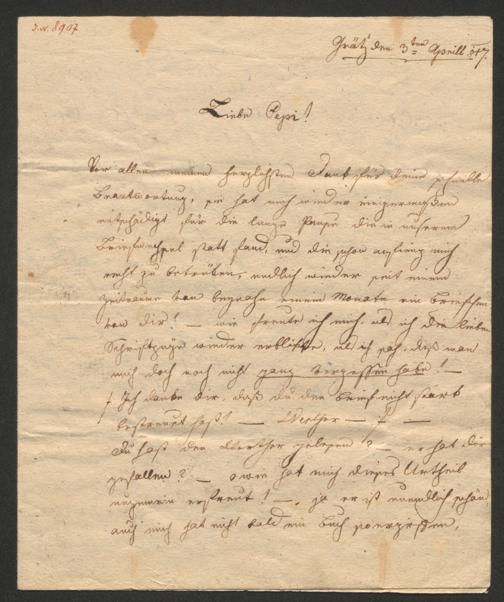 Inv. 8907
Grätz den 3ten Aprill 817.
Liebe Pepi!
Vor allem meinen herzlichsten Dank für deine schnelle
Beantwortung, sie hat mich wieder einigermaßen
entschädigt für die lange Pause die in unserem
Briefwechsel statt fand, und die schon anfieng mich
recht zu betrüben, endlich wieder seit einem
Zeitraume von beynahe einem Monate ein Briefchen
von dir! — wie freute ich mich, als ich die lieben
Schriftzüge wieder erblickte, als ich sah, daß man
mich doch noch nicht ganz vergessen habe! —
Ich danke dir, daß du den Brief nicht stark
bestreuet hast! — Werther — ! —
du hast den Werther gelesen? — er hat dir
gefallen? — o wie hat mich dieses Urtheil
ungemein erfreut! — ja er ist unendlich schön
auch mich hat nicht bald ein Buch so ergriffen,